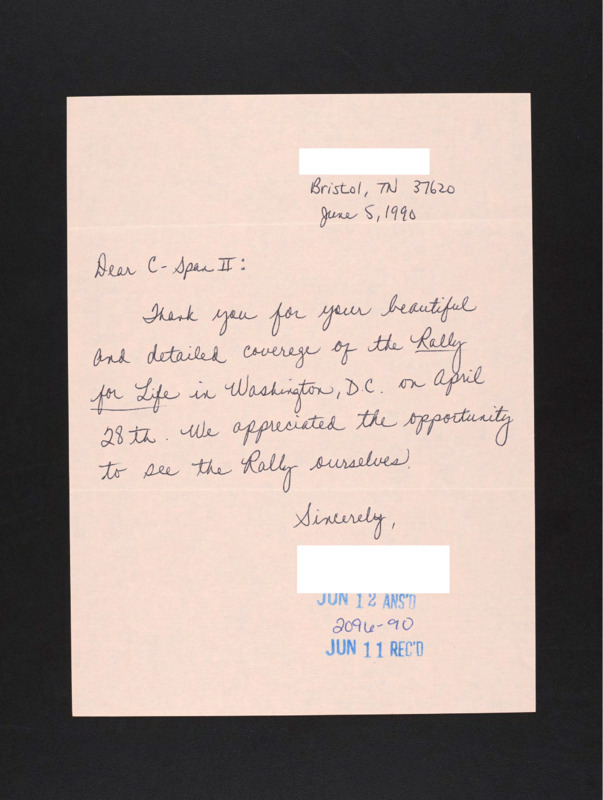 Bristol, TN 37620
June 5, 1990
Dear C-Span II:
Thank you for your beautiful
and detailed coverege of the Rally
for Life in Washington, D.C. on April
28th. We appreciated the opportunity
to see the Rally ourselves.
Sincerely,
JUN 12 ANS'D
2096-90
JUN 11 REC'D